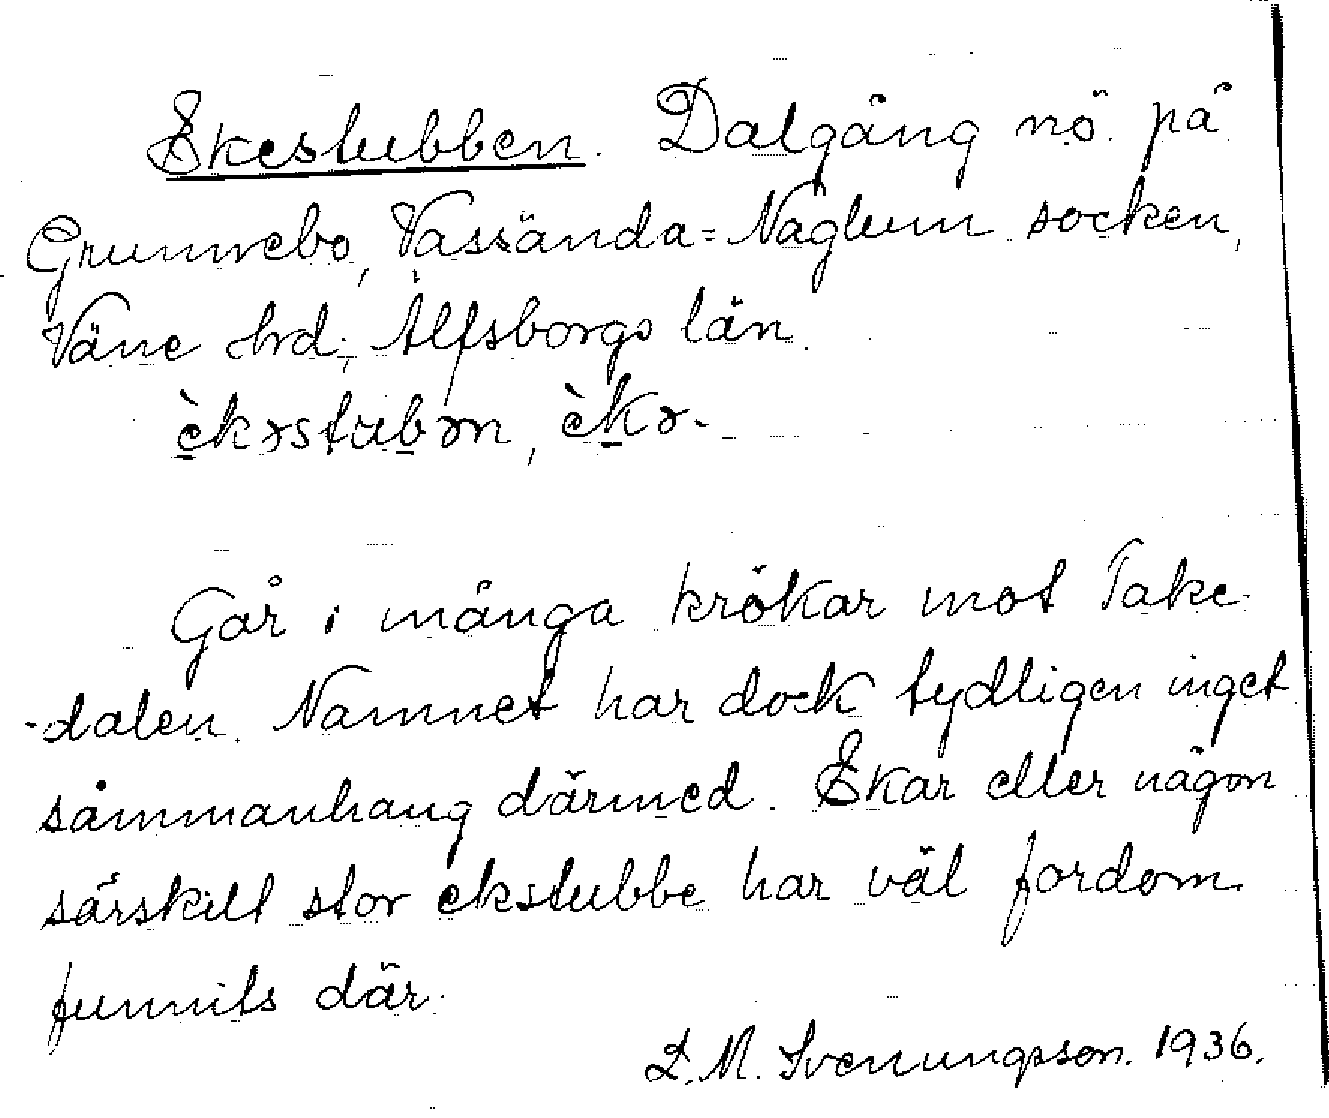 Ekestubben. Dalgång nö. på
Grunnebo, Vassända=Naglum socken,
Väne hrd, Älfsborgs län.
èkəstubən, èkə-.
Går i många krökar mot Take-
-dalen. Namnet har dock tydligen inget
sammanhang därmed. Ekar eller någon
särskilt stor ekstubbe har väl fordom
funnits där.
L. M. Svenungsson. 1936.